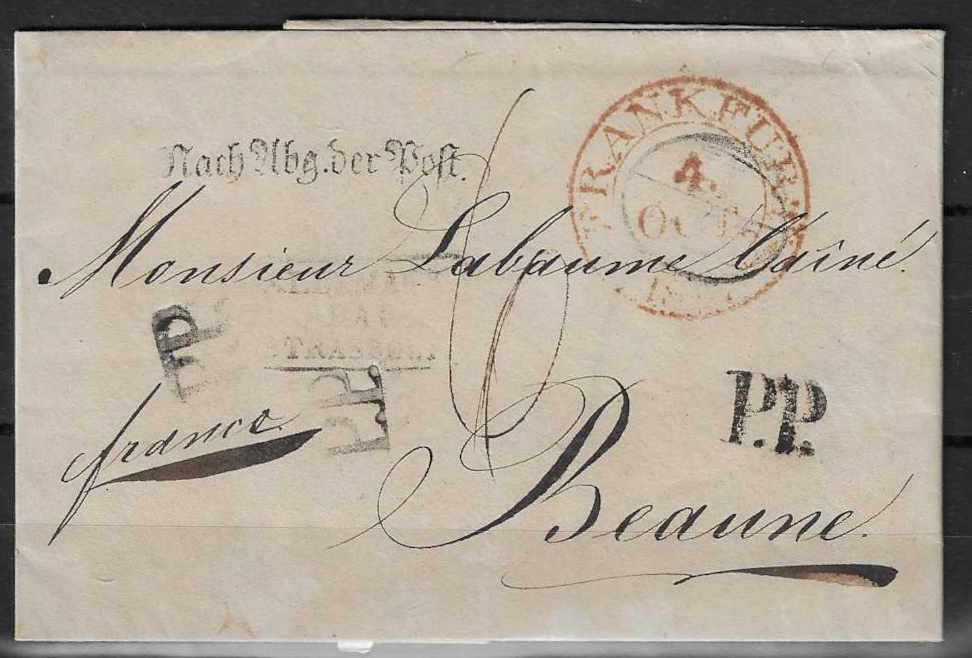 Nach Abg. der Post.
FRANKFURT
4.
OCT.
Monsieur Labaume l'aîné.
P.P.
P.P.
P.P.
franco.
Beaune.